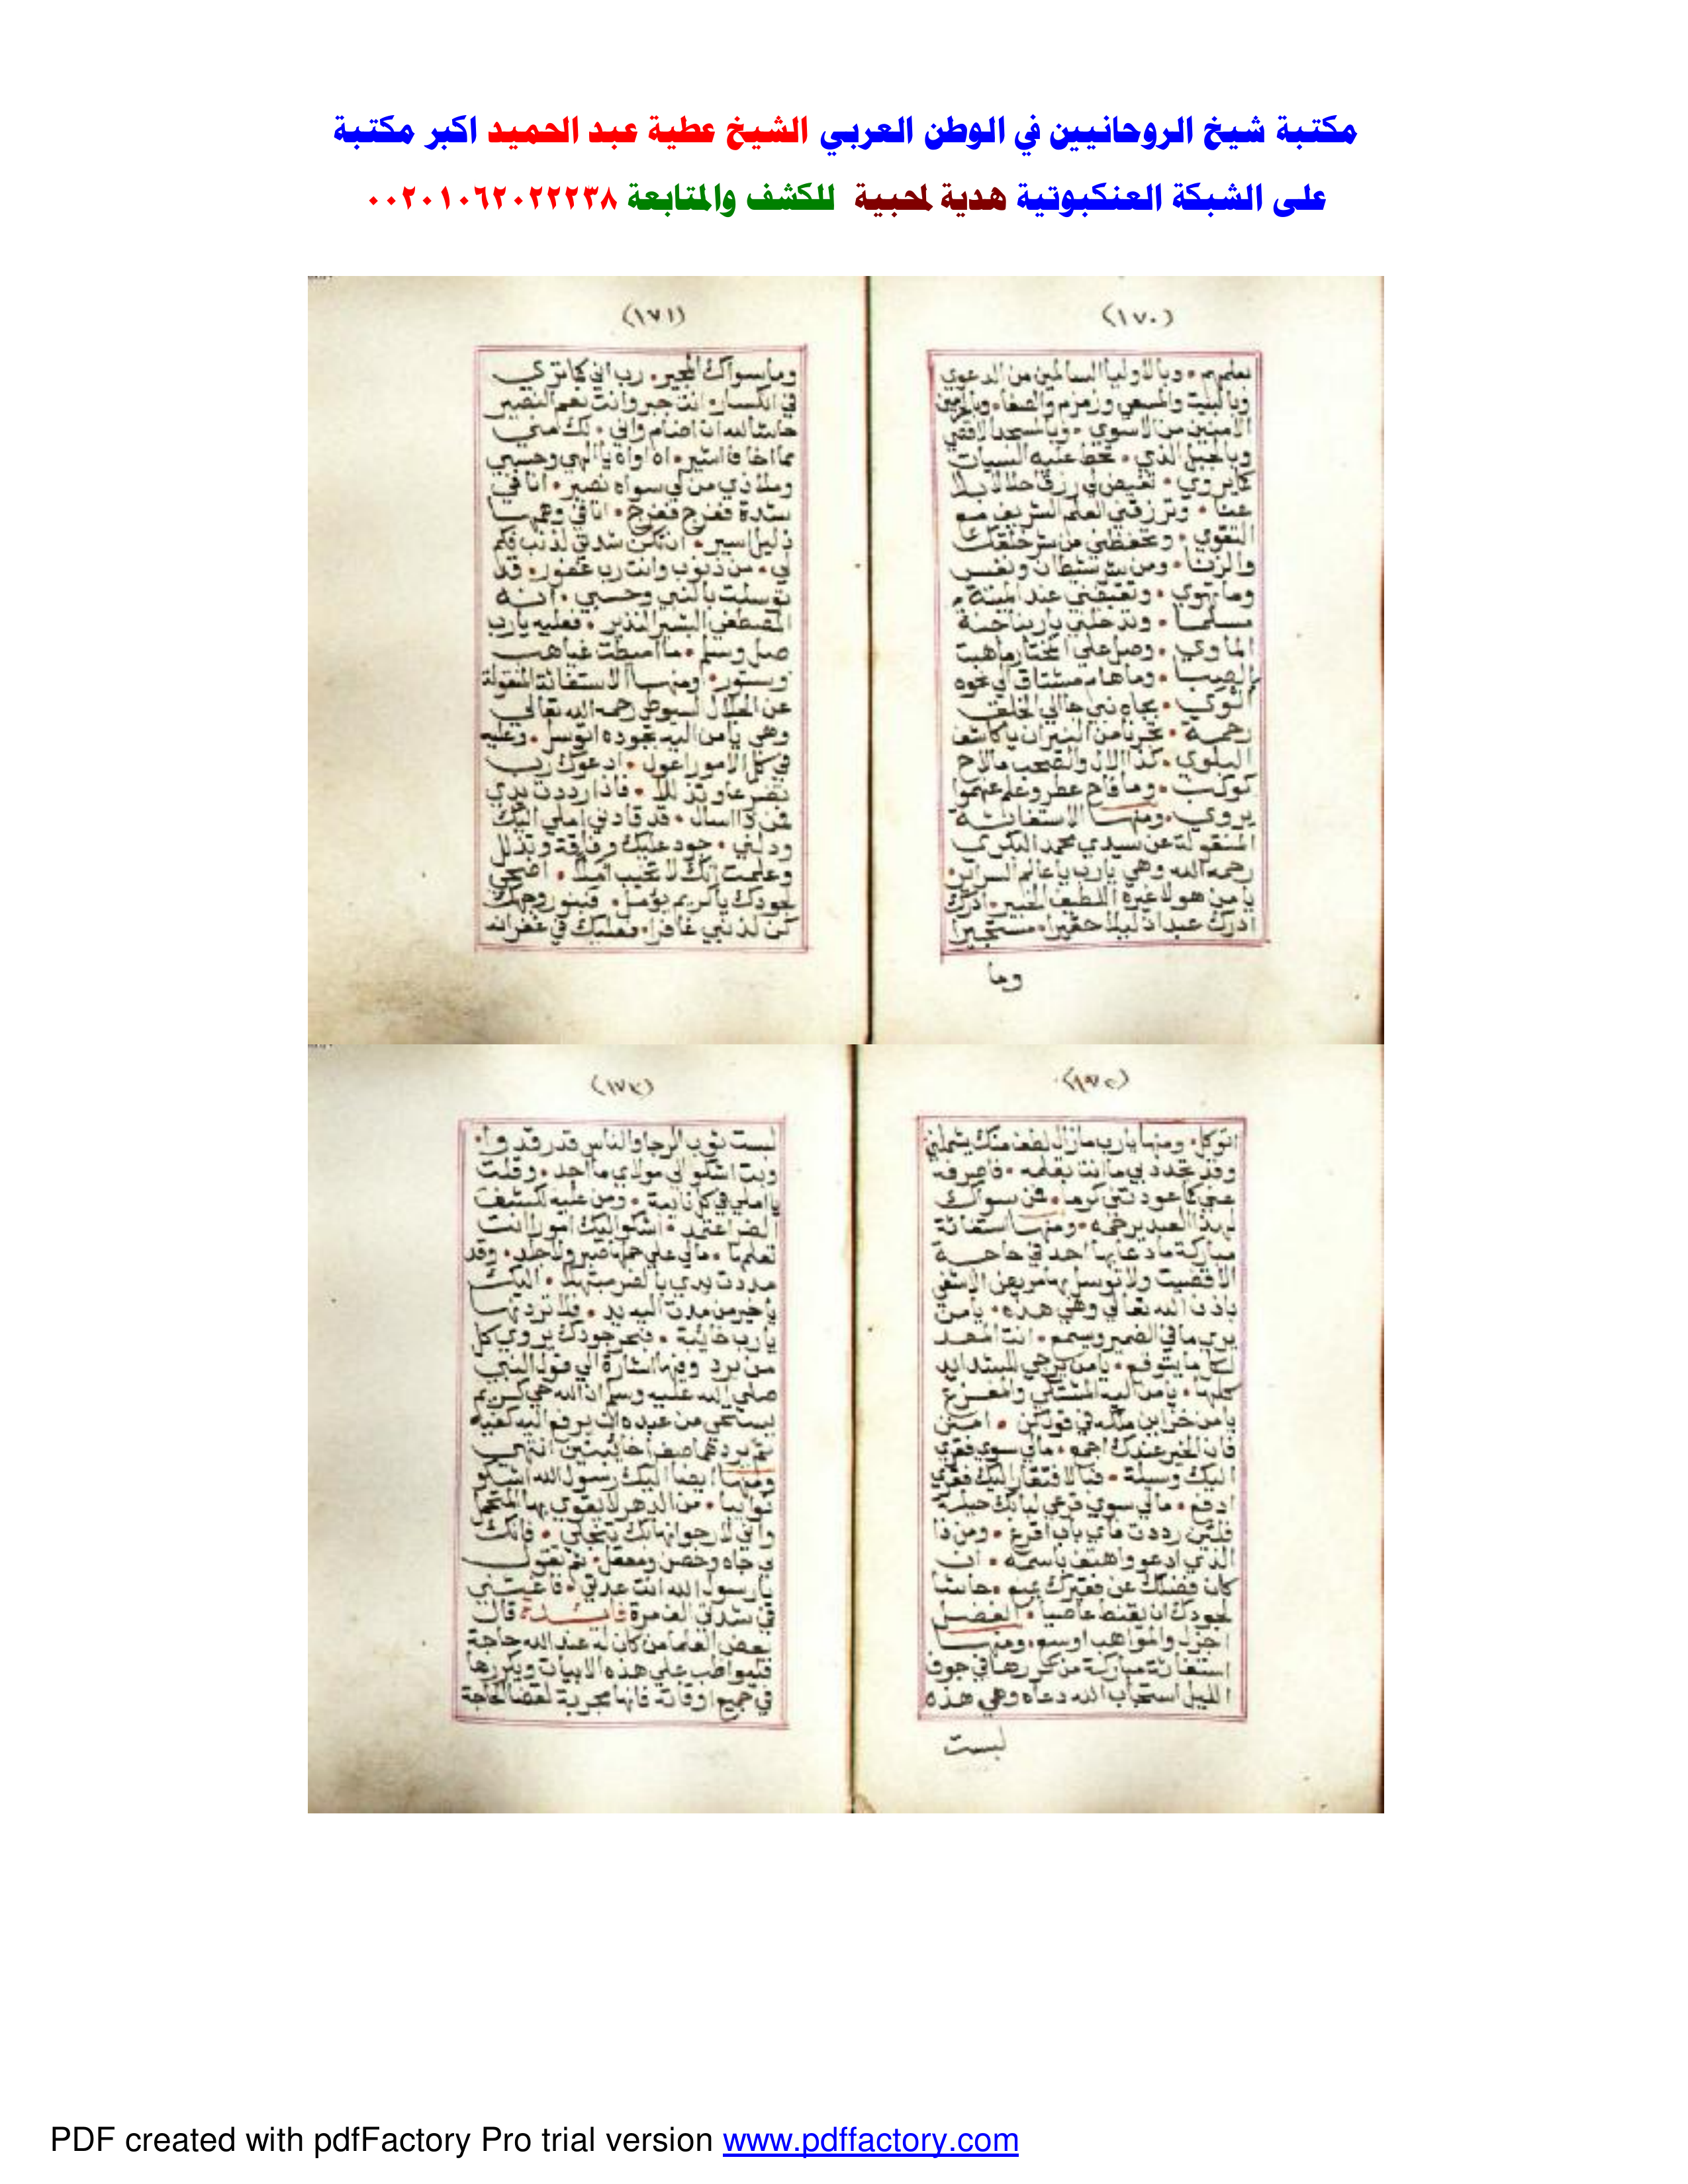 مكتبة شيخ الروحانيين في الوطن العربي الشيخ عطية عبد الحميد اكبر مكتبة
على الشبكة العنكبوتية هدية لمحبية للكشف والمتابعة ٠٠٢٠١٠٦٢٠٢٢٢٣٨
(١٧٠)
وبالاوليا السالمين من الدعوي
وبالبيت والمسعي وزمزم والصفا
الامنين من الاسوي وبالمسجد الاقصي
وبالجبل الذي تحط عليه السيات
كما يروي لي رزقا حلالا بلا
عنا وترزقني العلم الشريف مع
التقوي وتحفظني من شر خلقك
والزنا ومن شيطان ونفس
وما تهوي عند المنية
مسلما وتدخلني يا ربنا جنة
الماوي وصل علي المختار ما هبت
الصبا وما هام مشتاق الي نحوه
بجاه نبي جا الي الخلق
رحمة من النيران يا كاشف
البلوي كذا الال والصحب ما لاح
كوكب وما فاح عطر وعلم عنهموا
يروي ومنها الاستغاثة
المنقولة عن سيدي محمد البكري
رحمه الله وهي يارب يا عالم السراير
يا من هو لا غيره اللطيف الخبير ادرك
ادرك عبدا ذليلا حقيرا مستجيرا
وما
(١٧١)
وما سواك المجير رب اني كما تري
في انكسار انت جبر وانت نعم النصير
حاش لله ان اضام واني لك مني
مما اخاف استير اه اواه يا الهي وحسبي
وملاذي من لي سواه نصير انا في
شدة ففرج ففرج انا في
ذليل اسير ان تكن شدتي لذنب فكم
لي من ذنوب وانت رب غفور قد
توسلت بالنبي وحسبي انه
المصطفي البشير النذير فعليه يارب
صل وسلم ما اميطت غياهب
وستور ومنها الاستغاثة المنقولة
عن الجلال السيوطي رحمه الله تعالي
وهي يا من اليه بجوده اتوسل وعليه
في كل الامور اعول ادعوك رب
تضرعا وتذللا فاذا رددت يدي
فمن ذا اسال قد قادني املي اليك
ودلني جود عليك وفاقة وتذلل
وعلمت انك لا تخيب املا اضحي
لجودك يا كريم يؤمل فبنور وجهك
كن لذنبي غافرا فعليك في غفرانه
(١٧٢)
اتوكل ومنها يارب مازال لطف منك يشملني
وقد تجدد بي ما انت تعلمه فاصرفه
عني كما عودتني كرما فمن سواك
لهذا العبد يرحمه ومنها استغاثة
مباركة ما دعا بها احد في حاجة
الا قضيت ولا توسل بها مريض الا شفي
باذن الله تعالي وهي هذه يا من
يري ما في الضمير ويسمع انت المعد
لكل ما يتوقع يا من يرجي للشدايد
كلها يا من اليه المشتكي والمفزع
يا من خزاين ملكه في قول كن امنن
فان الخير عندك اجمع مالي سوي فقري
اليك وسيلة فبالافتقار اليك فقري
ادفع مالي سوي قرعي لبابك حيلة
فلئن رددت فاي باب اقرع ومن ذا
الذي ادعو واهتف باسمه ان
كان فضلك عن فقيرك يمنع حاشا
لجودك ان يقنط عاصيا الفضل
اجزل والمواهب اوسع ومنها
استغاثة مباركة من كررها في جوف
الليل استجاب الله دعاه وهي هذه
لبست
(١٧٣)
لبست ثوب الرجا والناس قد رقدوا
وبت اشكو الي مولاي ما اجد وقلت
يا املي في كل نايبة ومن عليه لكشف
الضر اعتمد اشكو اليك امورا انت
تعلمها مالي علي حملها صبر ولا جلد وقد
مددت يدي بالضر مبتهلا اليك
يا خير من مدت اليه يد فلا تردنها
يارب خائبة فبحر جودك يروي كل
من يرد وفيها اشارة الي قول النبي
صلي الله عليه وسلم ان الله حي كريم
يستحي من عبده ان يرفع اليه كفيه
ثم يردهما صفرا خائبتين انتهي
ومنها ايضا اليك رسول الله اشكو
نوايبا من الدهر لا يقوي بها المتحمل
واني لارجو انها بك تنجلي فانك
لي جاه وحصن ومعقل ثم تقول
يا رسول الله انت عدتي فاغيثني
في شدتي المدمرة فائدة قال
بعض العلما من كان له عند الله حاجة
فليواظب علي هذه الابيات ويكررها
في جميع اوقاته فانها مجربة لقضا الحاجة
PDF created with pdfFactory Pro trial version www.pdffactory.com